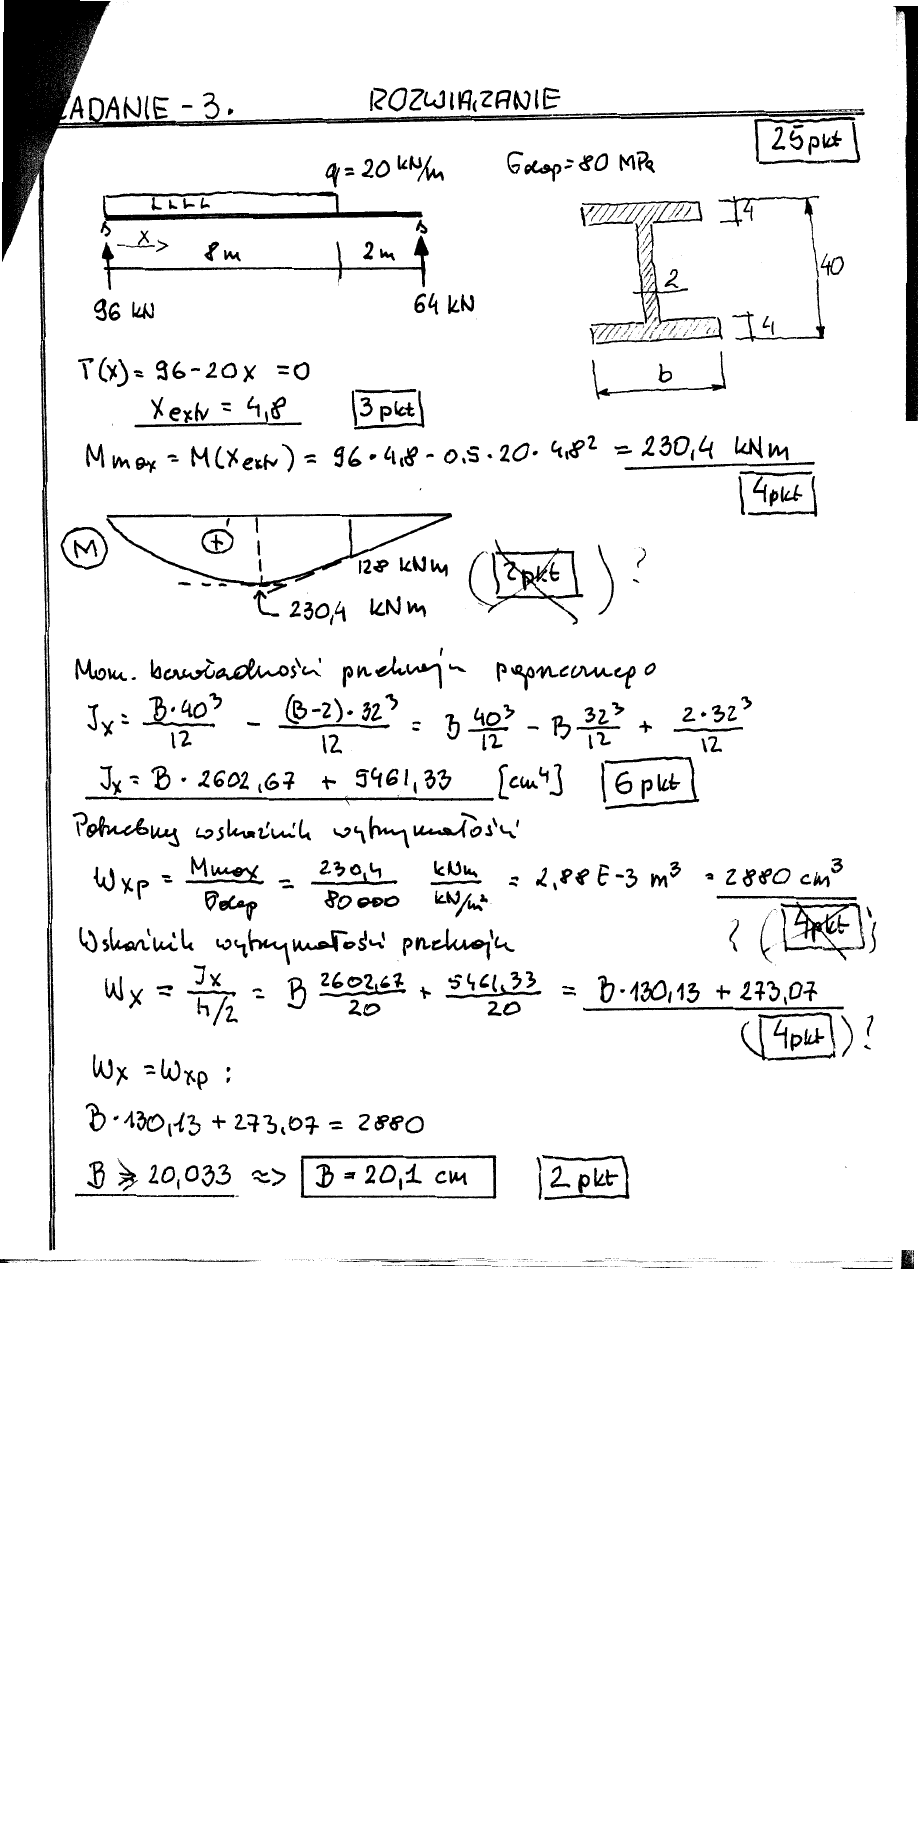 ZADANIE - 3. ROZWIĄZANIE
25 pkt
q = 20 kN/m
σdop = 80 MPa
x
8 m
2 m
96 kN
64 kN
4
2
40
4
b
T(x) = 96 - 20x = 0
Xextr = 4,8
3 pkt
Mmax = M(Xextr) = 96 · 4,8 - 0,5 · 20 · 4,8² = 230,4 kNm
4 pkt
M
+
128 kNm
230,4 kNm
( 2 pkt ) ?
Mom. bezwładności przekroju poprzecznego
Jx = B·40³/12 - (B-2)·32³/12 = B 40³/12 - B 32³/12 + 2·32³/12
Jx = B · 2602,67 + 5461,33 [cm⁴]
6 pkt
Potrzebny wskaźnik wytrzymałości
Wxp = Mmax/σdop = 230,4/80000 kNm/kN/m² = 2,88 E-3 m³ = 2880 cm³
? ( 4 pkt )
Wskaźnik wytrzymałości przekroju
Wx = Jx/h/2 = B 2602,67/20 + 5461,33/20 = B·130,13 + 273,07
( 4 pkt ) ?
Wx = Wxp :
B·130,13 + 273,07 = 2880
B ≥ 20,033 => B = 20,1 cm
2 pkt